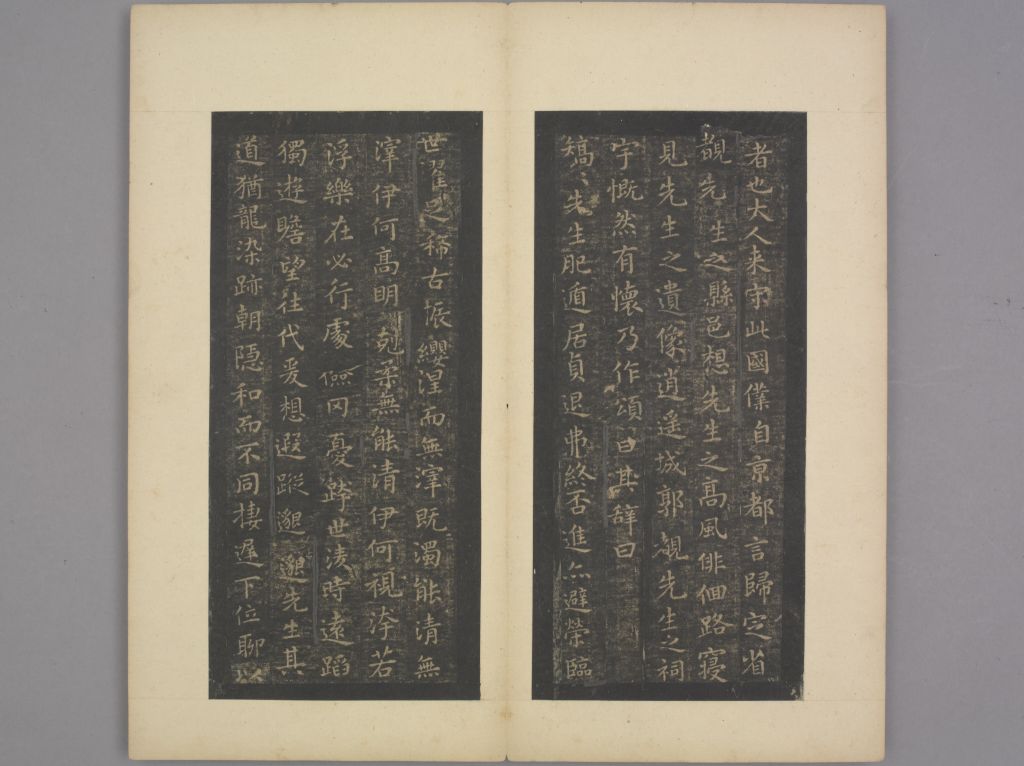 者也大人来守此國僕自京都言歸定省
覩先生之縣邑想先生之高風徘徊路寝
見先生之遺像逍遥城郭觀先生之祠
宇慨然有懷乃作頌曰其辭曰
矯〻先生肥遁居貞退弗終否進亦避榮臨
世濯之稀古振纓涅而無滓既濁能清無
滓伊何高明克柔無能清伊何視洿若
浮樂在必行處儉罔憂跨世淩時遠蹈
獨遊瞻望往代爰想遐蹤邈邈先生其
道猶龍染跡朝隱和而不同棲遲下位聊以